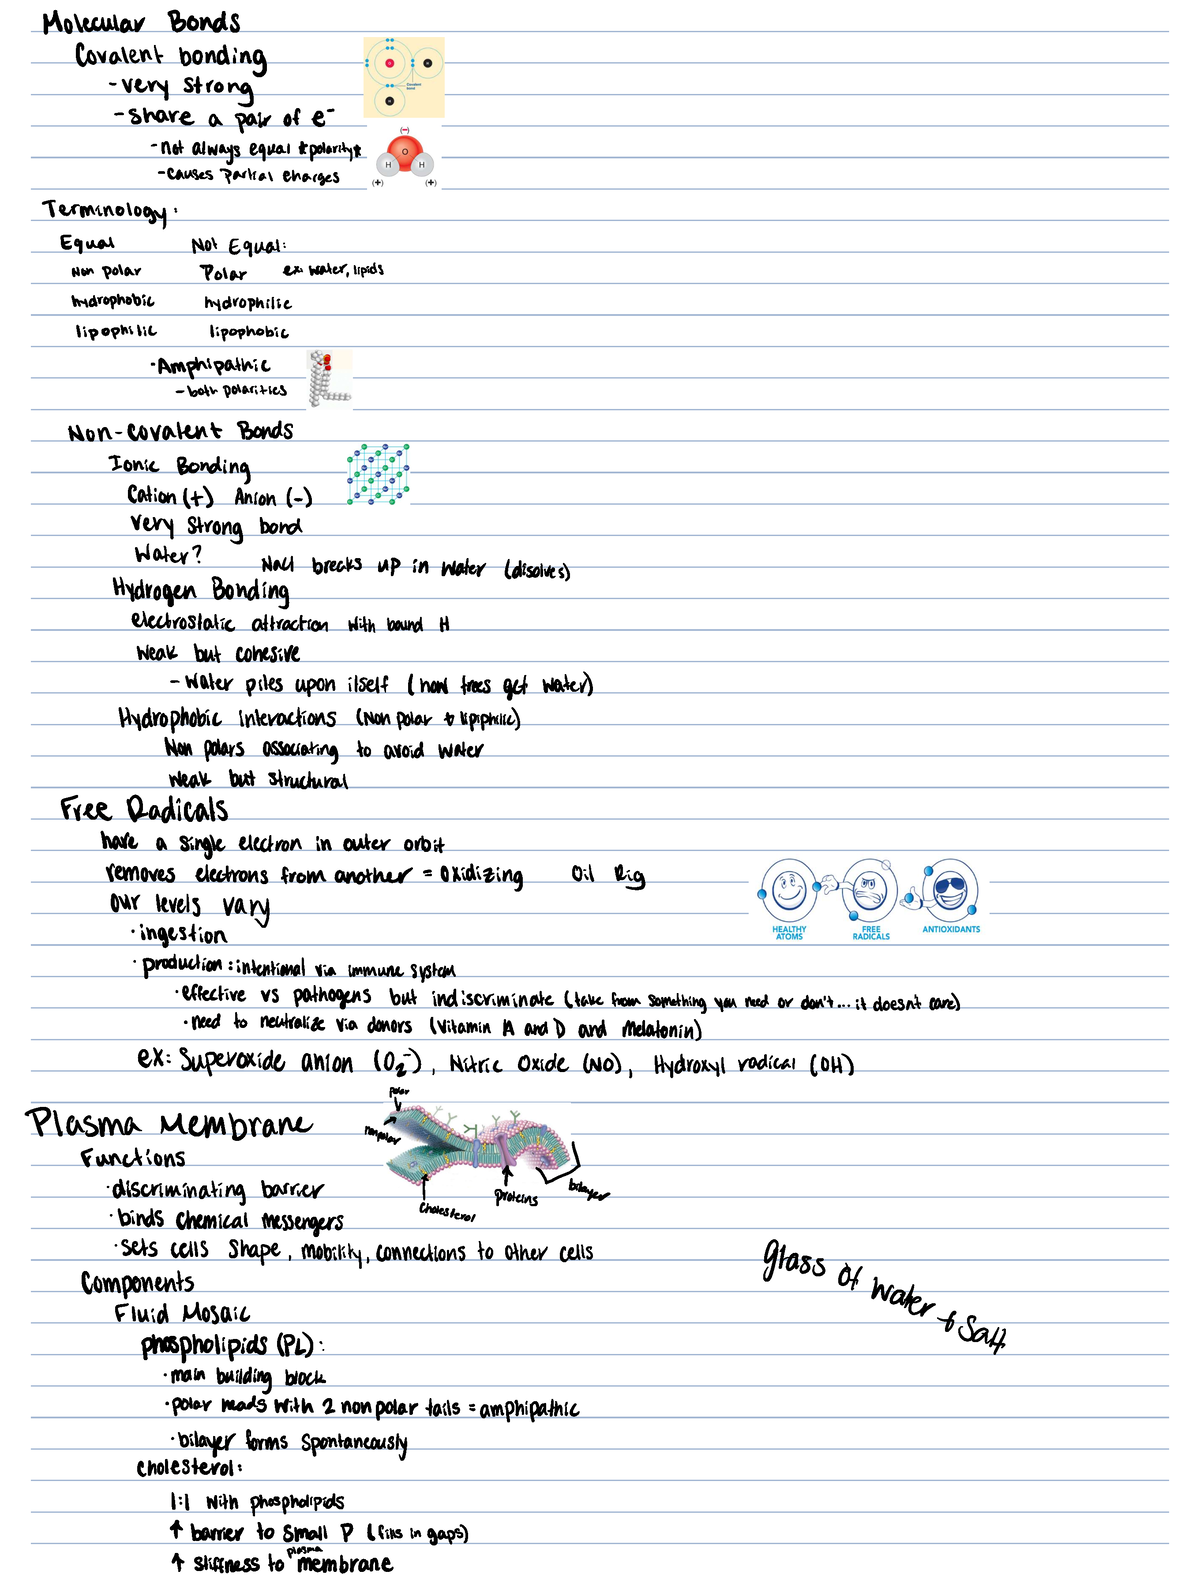 Molecular Bonds
Covalent bonding
-very strong
-share a pair of e⁻
-not always equal *polarity*
-causes partial charges
Covalent bond
(−)
O
H H
(+) (+)
Terminology:
Equal Not Equal:
Non polar Polar ex: water, lipids
hydrophobic hydrophilic
lipophilic lipophobic
·Amphipathic
- both polarities
Non-Covalent Bonds
Ionic Bonding
Cation (+) Anion (-)
very strong bond
Water? Nacl breaks up in water (disolves)
Hydrogen Bonding
electrostatic attraction with bound H
weak but cohesive
- water piles upon itself (how trees get water)
Hydrophobic interactions (Non polar & lipiphilic)
Non polars associating to avoid water
weak but structural
Free Radicals
have a single electron in outer orbit
removes electrons from another = oxidizing Oil Rig
our levels vary
·ingestion
·production: intentional via immune system
·effective vs pathogens but indiscriminate (take from something you need or don't... it doesnt care)
·need to neutralize via donors (vitamin A and D and Melatonin)
ex: Superoxide anion (O₂⁻), Nitric Oxide (NO), Hydroxyl radical (OH)
HEALTHY ATOMS
FREE RADICALS
ANTIOXIDANTS
Plasma Membrane
polar
nonpolar
cholesterol
proteins
bilayer
Functions
·discriminating barrier
·binds chemical messengers
·sets cells shape, mobility, connections to other cells
Components
Fluid Mosaic
phospholipids (PL):
·main building block
·polar heads with 2 nonpolar tails = amphipathic
·bilayer forms spontaneously
cholesterol:
1:1 with phospholipids
↑ barrier to small P (fills in gaps)
↑ stiffness to plasma membrane
glass of water & salt